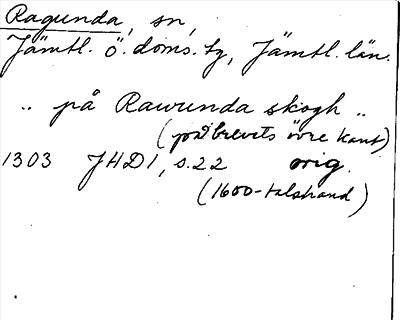 Ragunda, sn,
Jämtl. ö. doms. tg, Jämtl. län.
.. på Rawunda skogh ..
(på brevets övre kant)
1303 JHD1, s. 22 orig.
(1600-talshand)